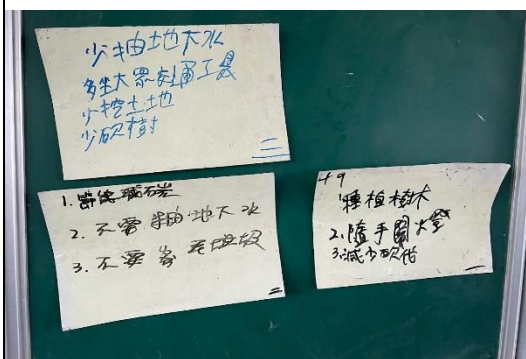 少抽地下水
多坐大眾交通工具
少挖土地
少砍樹
三
1. 節能減碳
2. 不要抽地下水
3. 不要 垃圾
二
種植樹木
2. 隨手關大燈
3. 減少砍伐
一